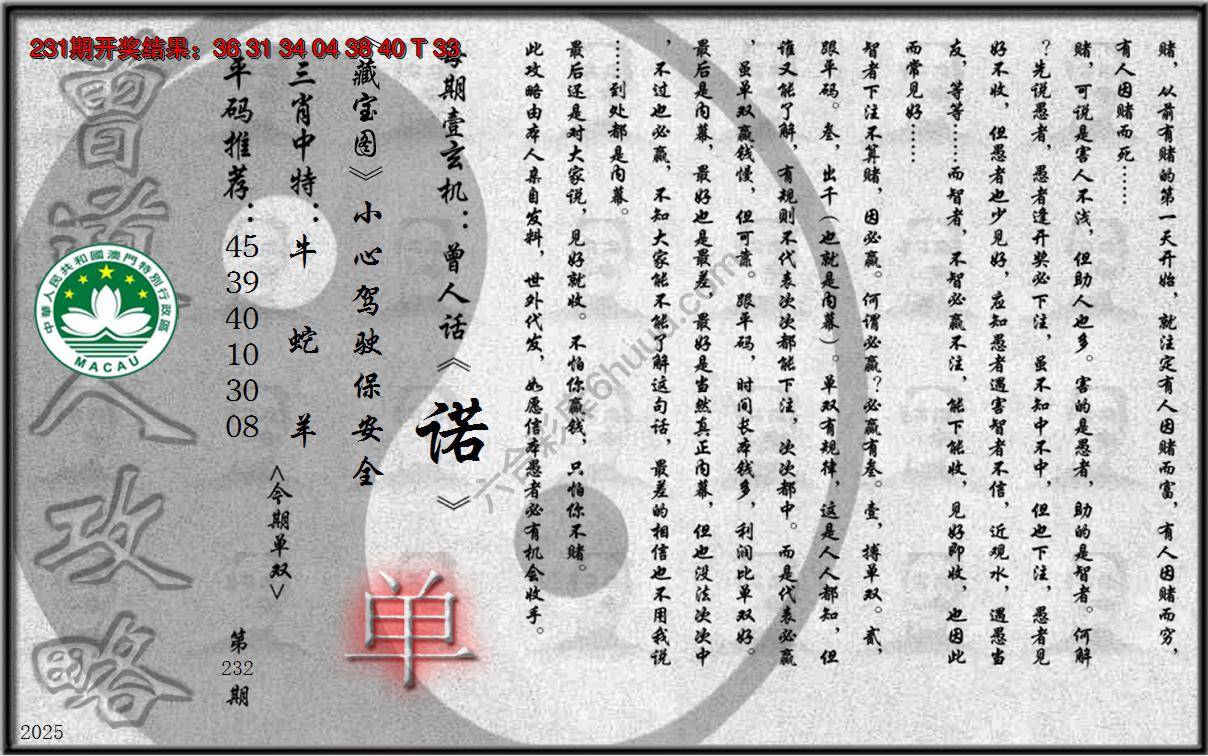 231期开奖结果：36 31 34 04 38 40 T 33
赌，从前有赌的第一天开始，就注定有人因赌而富，有人因赌而穷，
有人因赌而死……
赌，可说是害人不浅，但助人也多。害的是愚者，助的是智者。何解
？先说愚者，愚者逢开奖必下注，虽不知中不中，但也下注，愚者见
好不收，但愚者也少见好，应知愚者遇害智者不信，近观水，遇愚当
友，等等……而智者，不智必赢不注，能下能收，见好即收，也因此
而常见好……
智者下注不算赌，因必赢。何谓必赢？必赢有叁。壹，搏单双。贰，
跟平码。叁，出千（也就是内幕）。单双有规律，这是人人都知，但
谁又能了解，有规则不代表次次都能下注，次次都中。而是代表必赢
，虽单双赢钱慢，但可靠。跟平码，时间长本钱多，利润比单双好。
最后是内幕，最好也是最差，最好是当然真正内幕，但也没法次次中
，不过也必赢，不知大家能不能了解这句话，最差的相信也不用我说
……到处都是内幕。
最后还是对大家说，见好就收。不怕你赢钱，只怕你不赌。
此攻略由本人亲自发料，世外代发，如愿信本愚者必有机会收手。
每期壹玄机：曾人话《诺》
《藏宝图》小心驾驶保安全
单
三肖中特：牛 蛇 羊
<今期单双>
平码推荐：
45
39
40
10
30
08
第
232
期
曾道人攻略
中華人民共和國澳門特別行政區
MACAU
六合彩库6huuu.com
2025